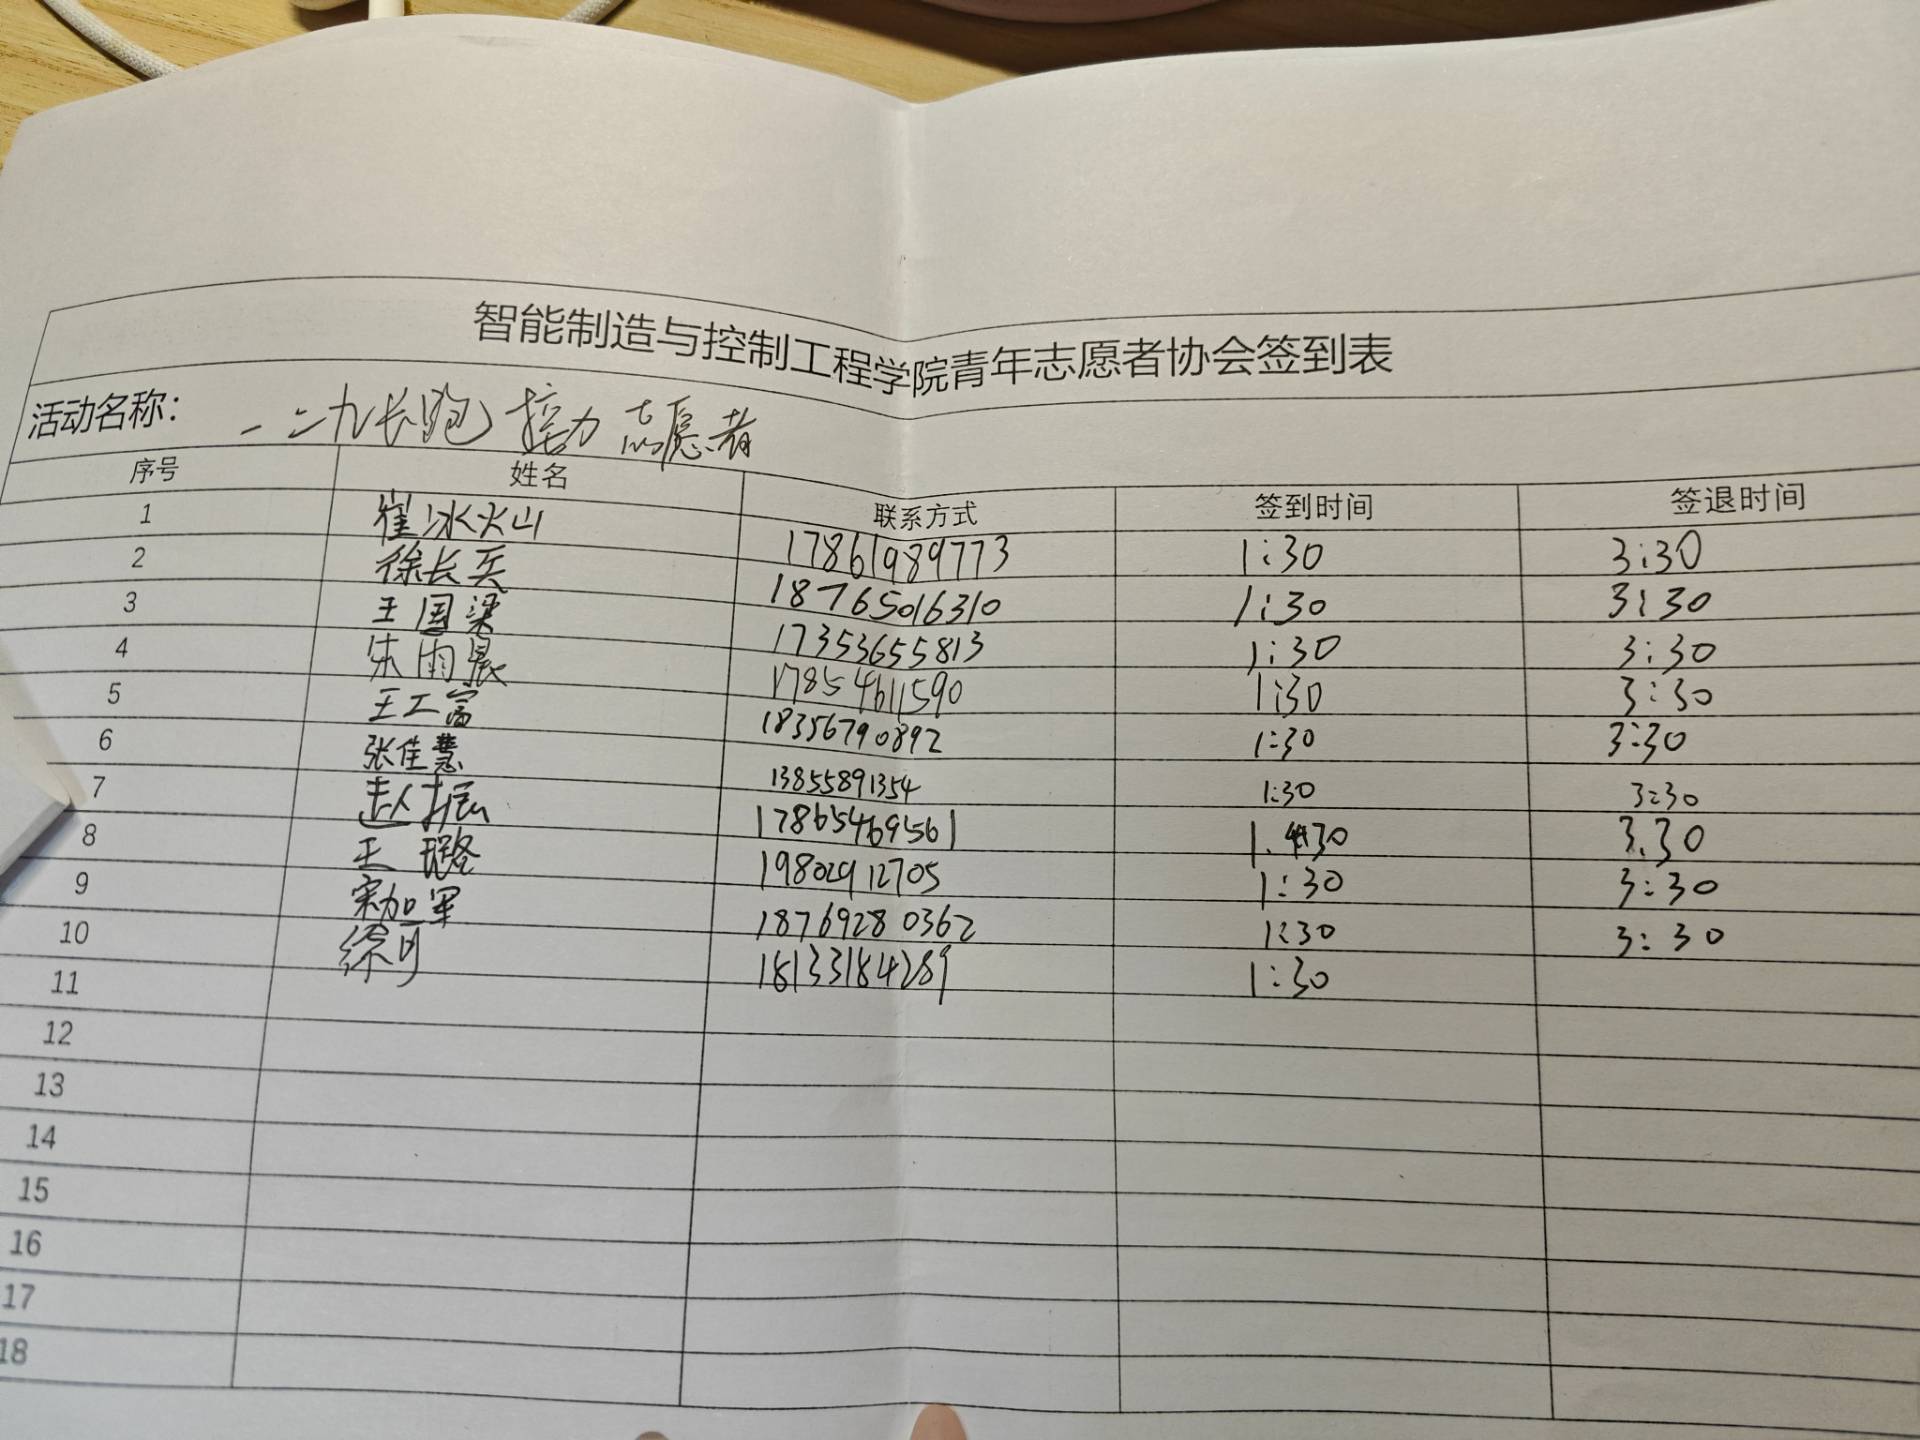 智能制造与控制工程学院青年志愿者协会签到表
活动名称: 一二九长跑接力志愿者
序号 姓名 联系方式 签到时间 签退时间
1 崔冰火山 17861989773 1:30 3:30
2 徐长兵 18765016310 1:30 3:30
3 王国梁 17353655813 1:30 3:30
4 宋雨晨 17854611590 1:30 3:30
5 王工富 18356790892 1:30 3:30
6 张佳慧 13855891354 1:30 3:30
7 赵振 17865469561 1.30 3.30
8 王璐 19802912705 1:30 3:30
9 宋加军 18769280362 1:30 3:30
10 徐可 18133184289 1:30
11
12
13
14
15
16
17
18